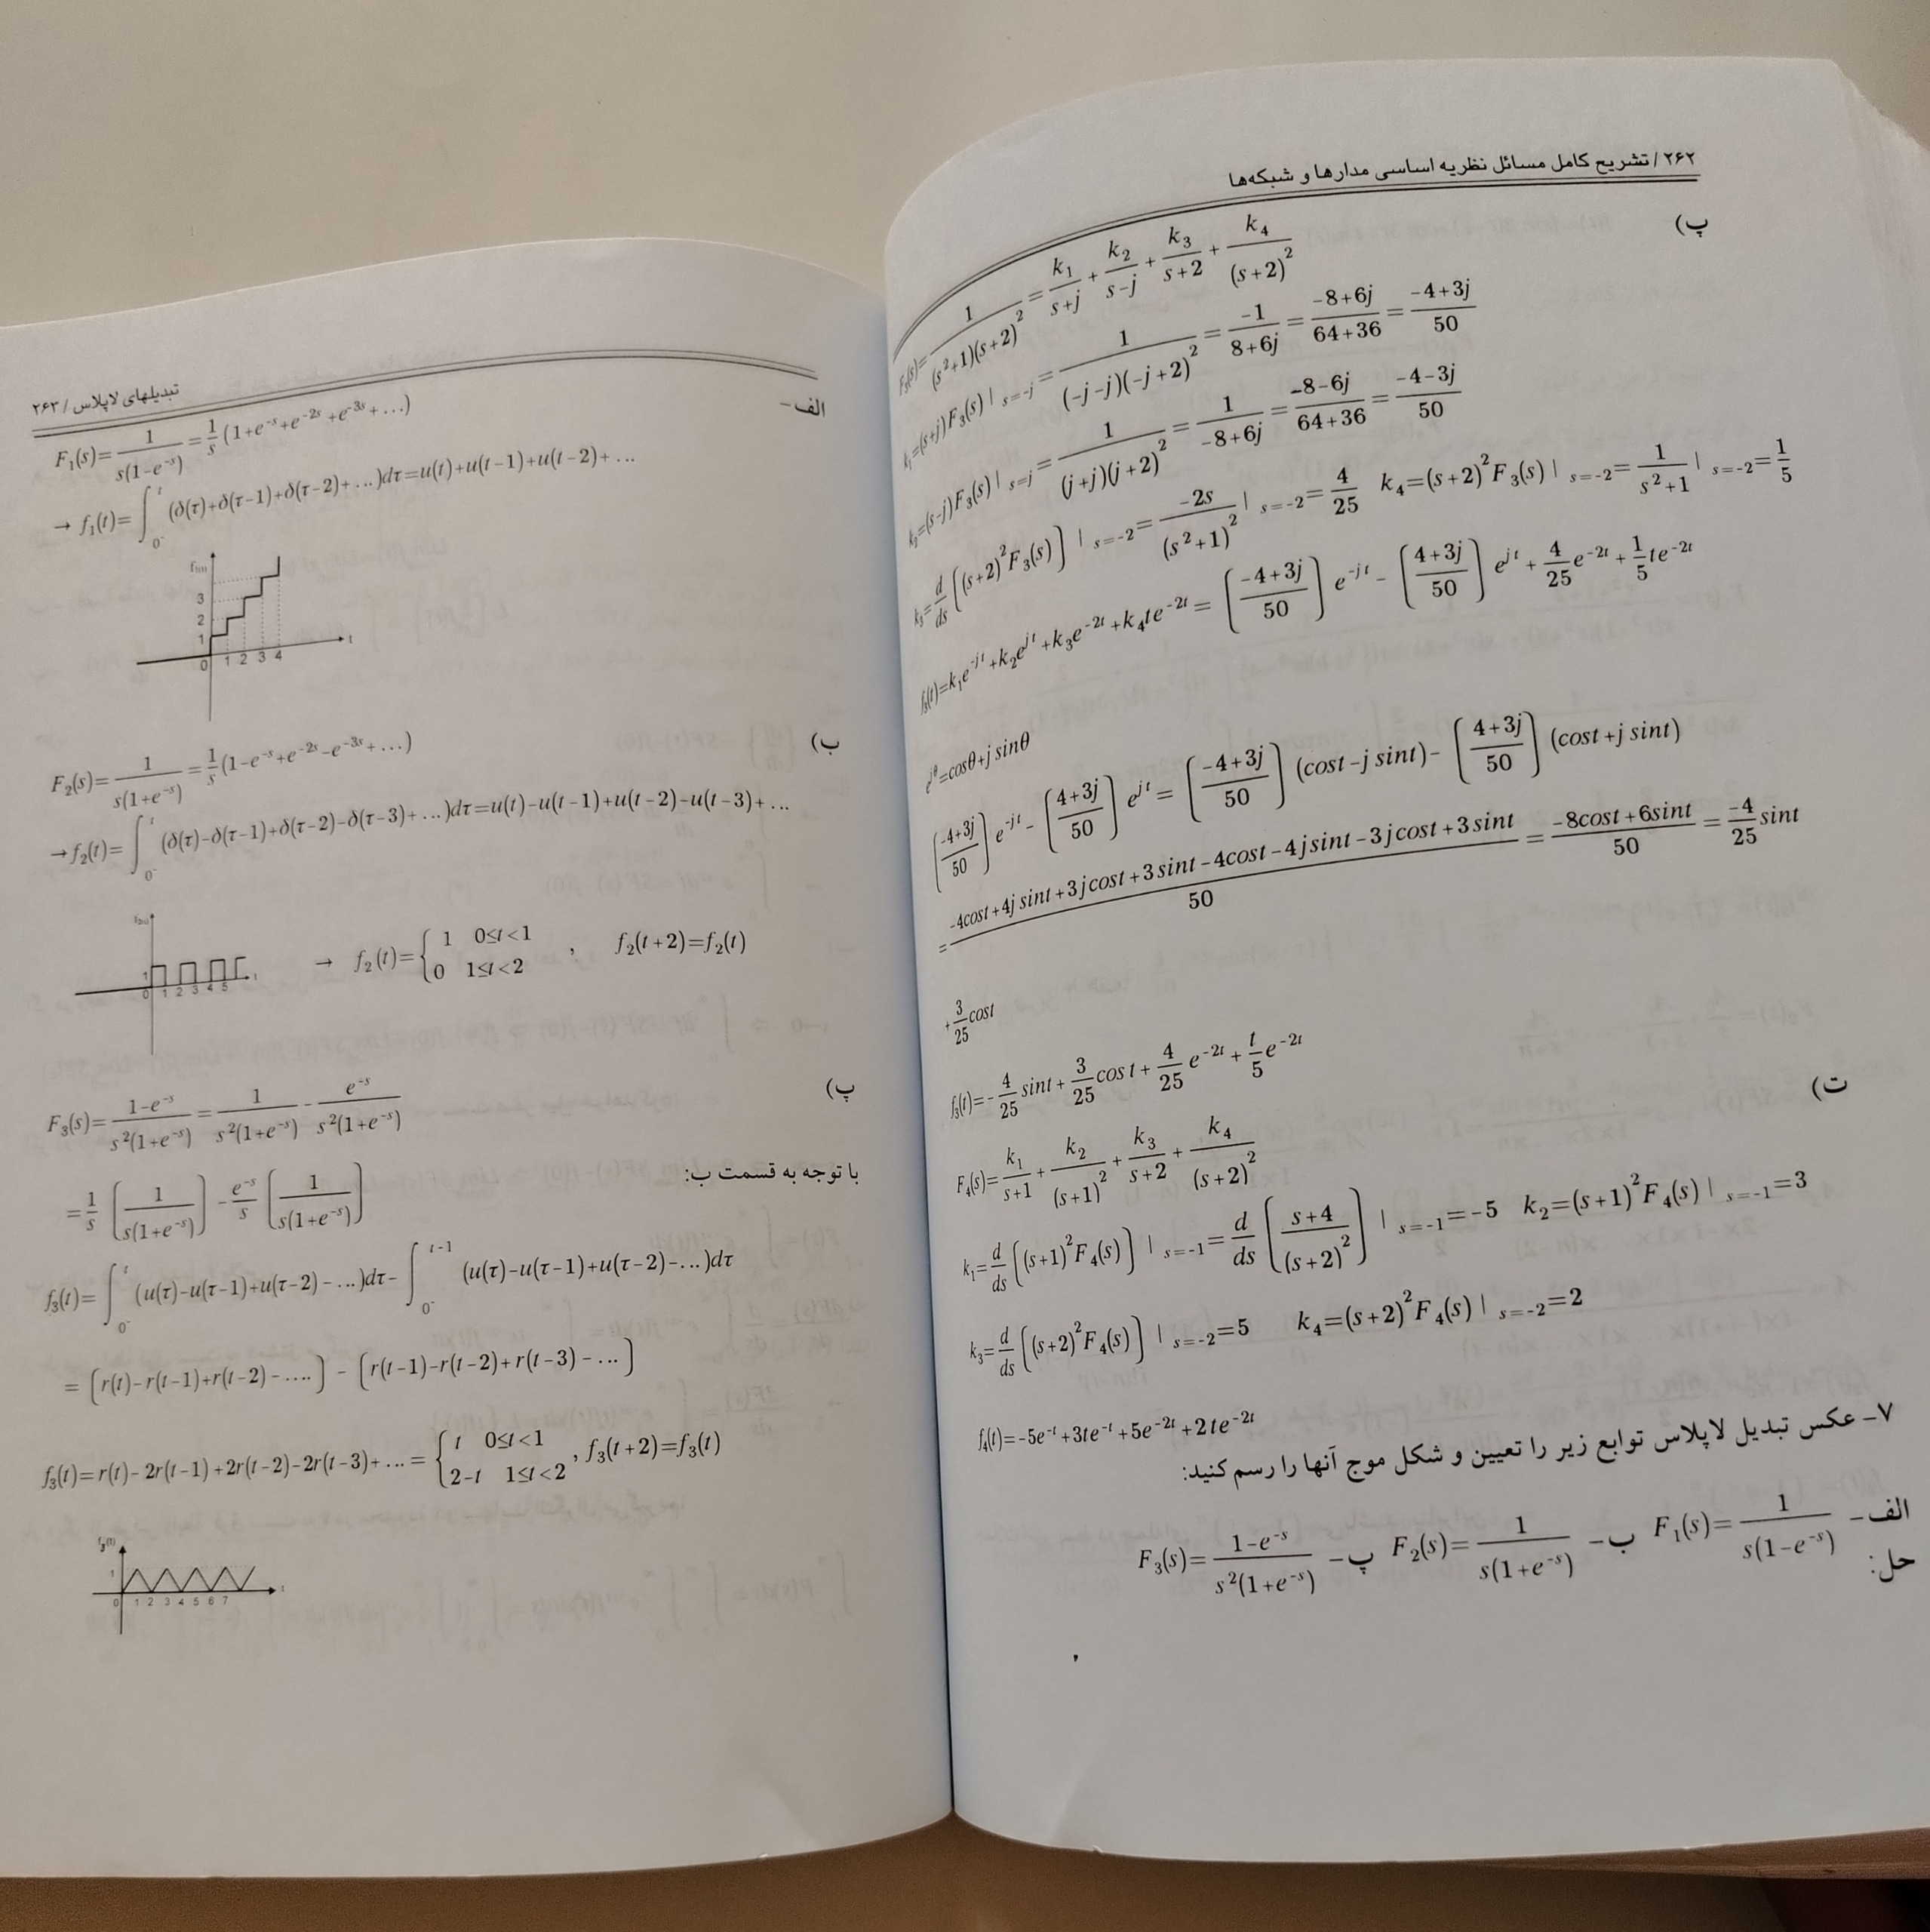 ۲۶۲ / تشریح کامل مسائل نظریه اساسی مدارها و شبکه‌ها
پ)
F₃(s)=1/((s²+1)(s+2)²)=k₁/(s+j)+k₂/(s-j)+k₃/(s+2)+k₄/(s+2)²
k₁=(s+j)F₃(s)|s=-j=1/((-j-j)(-j+2)²)=-1/(8+6j)=(-8+6j)/(64+36)=(-4+3j)/50
k₂=(s-j)F₃(s)|s=j=1/((j+j)(j+2)²)=1/(-8+6j)=(-8-6j)/(64+36)=(-4-3j)/50
k₃=d/ds[(s+2)²F₃(s)]|s=-2=-2s/(s²+1)²|s=-2=4/25 k₄=(s+2)²F₃(s)|s=-2=1/(s²+1)|s=-2=1/5
f₃(t)=k₁e^(-jt)+k₂e^(jt)+k₃e^(-2t)+k₄te^(-2t)=[(-4+3j)/50]e^(-jt)-[(4+3j)/50]e^(jt)+4/25e^(-2t)+1/5te^(-2t)
e^(jθ)=cosθ+j sinθ
[(-4+3j)/50]e^(-jt)-[(4+3j)/50]e^(jt)=[(-4+3j)/50](cost-j sint)-[(4+3j)/50](cost+j sint)
=(-4cost+4j sint+3j cost+3 sint-4cost-4j sint-3j cost+3 sint)/50=(-8cost+6sint)/50=-4/25 sint
+3/25 cost
f₃(t)=-4/25 sint+3/25 cost+4/25 e^(-2t)+t/5 e^(-2t)
ت)
F₄(s)=k₁/(s+1)+k₂/(s+1)²+k₃/(s+2)+k₄/(s+2)²
k₁=d/ds[(s+1)²F₄(s)]|s=-1=d/ds[(s+4)/(s+2)²]|s=-1=-5 k₂=(s+1)²F₄(s)|s=-1=3
k₃=d/ds[(s+2)²F₄(s)]|s=-2=5 k₄=(s+2)²F₄(s)|s=-2=2
f₄(t)=-5e^(-t)+3te^(-t)+5e^(-2t)+2te^(-2t)
۷- عکس تبدیل لاپلاس توابع زیر را تعیین و شکل موج آنها را رسم کنید:
الف- F₁(s)=1/(s(1-e^(-s))) ب- F₂(s)=1/(s(1+e^(-s))) پ- F₃(s)=(1-e^(-s))/(s²(1+e^(-s)))
حل:
تبدیلهای لاپلاس / ۲۶۳
الف-
F₁(s)=1/(s(1-e^(-s)))=1/s(1+e^(-s)+e^(-2s)+e^(-3s)+...)
→ f₁(t)=∫₀₋^t(δ(τ)+δ(τ-1)+δ(τ-2)+...)dτ=u(t)+u(t-1)+u(t-2)+...
3
2
1
0 1 2 3 4 t
ب)
F₂(s)=1/(s(1+e^(-s)))=1/s(1-e^(-s)+e^(-2s)-e^(-3s)+...)
→ f₂(t)=∫₀₋^t(δ(τ)-δ(τ-1)+δ(τ-2)-δ(τ-3)+...)dτ=u(t)-u(t-1)+u(t-2)-u(t-3)+...
→ f₂(t)={1 0≤t<1
0 1≤t<2 , f₂(t+2)=f₂(t)
1
0 1 2 3 4 5 t
پ)
F₃(s)=(1-e^(-s))/(s²(1+e^(-s)))=1/(s²(1+e^(-s)))-e^(-s)/(s²(1+e^(-s)))
با توجه به قسمت ب:
=1/s[1/(s(1+e^(-s)))]-e^(-s)/s[1/(s(1+e^(-s)))]
f₃(t)=∫₀₋^t(u(τ)-u(τ-1)+u(τ-2)-...)dτ-∫₀₋^(t-1)(u(τ)-u(τ-1)+u(τ-2)-...)dτ
=[r(t)-r(t-1)+r(t-2)-....]-[r(t-1)-r(t-2)+r(t-3)-...]
f₃(t)=r(t)-2r(t-1)+2r(t-2)-2r(t-3)+...={t 0≤t<1
2-t 1≤t<2 , f₃(t+2)=f₃(t)
f₃(t)
1
0 1 2 3 4 5 6 7 t